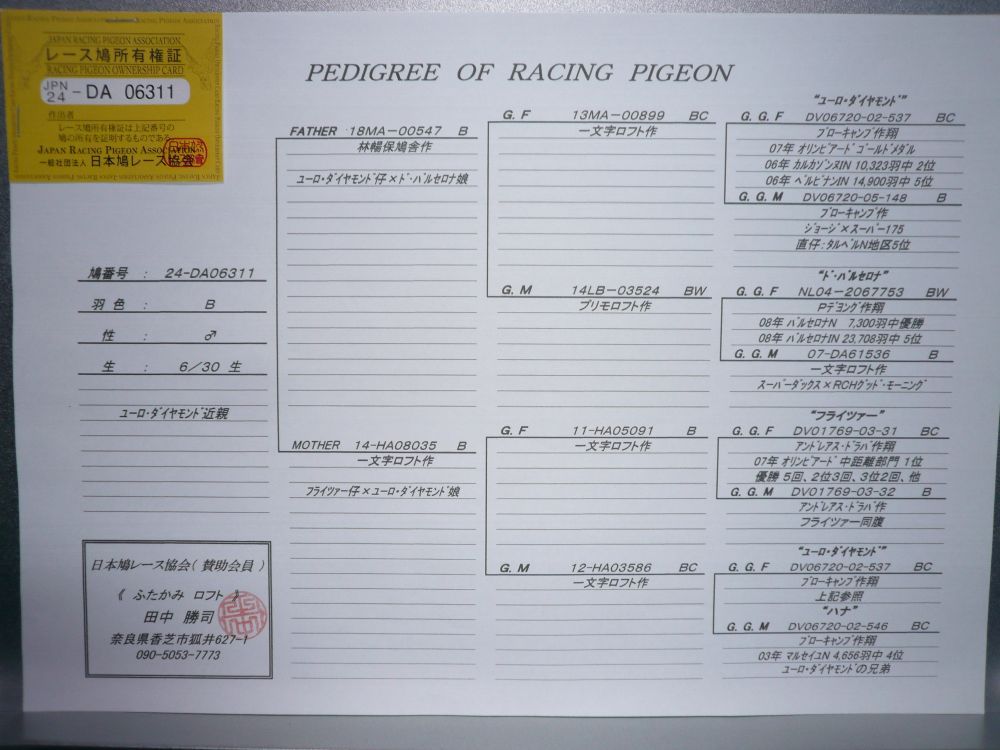 JAPAN RACING PIGEON ASSOCIATION
レース鳩所有権証
RACING PIGEON OWNERSHIP CARD
JPN
24 -DA 06311
作出者
レース鳩所有権証は上記番号の
鳩の所有を証明するものである
JAPAN RACING PIGEON ASSOCIATION
一般社団法人 日本鳩レース協会
PEDIGREE OF RACING PIGEON
鳩番号 : 24-DA06311
羽色 : B
性 : ♂
生 : 6/30 生
ユーロ・ダイヤモンド近親
日本鳩レース協会( 賛助会員 )
《 ふたかみ ロフト 》
田中 勝司
奈良県香芝市狐井627-1
090-5053-7773
FATHER 18MA-00547 B
林暢保鳩舎作
ユーロ・ダイヤモンド仔×ド・バルセロナ娘
MOTHER 14-HA08035 B
一文字ロフト作
フライツァー仔×ユーロ・ダイヤモンド娘
G. F 13MA-00899 BC
一文字ロフト作
G. M 14LB-03524 BW
プリモロフト作
G. F 11-HA05091 B
一文字ロフト作
G. M 12-HA03586 BC
一文字ロフト作
"ユーロ・ダイヤモンド"
G. G. F DV06720-02-537 BC
ブローキャンプ作翔
07年 オリンピアード ゴールドメダル
06年 カルカソンヌIN 10,323羽中 2位
06年 ペルピナンIN 14,900羽中 5位
G. G. M DV06720-05-148 B
ブローキャンプ作
ジョージ×スーパー175
直仔:タルベルN地区5位
"ド・バルセロナ"
G. G. F NL04-2067753 BW
Pデヨング作翔
08年 バルセロナN 7,300羽中優勝
08年 バルセロナIN 23,708羽中 5位
G. G. M 07-DA61536 B
一文字ロフト作
スーパーダックス×RCHグッド・モーニング
"フライツァー"
G. G. F DV01769-03-31 BC
アンドレアス・ドラパ作翔
07年 オリンピアード 中距離部門 1位
優勝 5回、2位3回、3位2回、他
G. G. M DV01769-03-32 B
アンドレアス・ドラパ作
フライツァー同腹
"ユーロ・ダイヤモンド"
G. G. F DV06720-02-537 BC
ブローキャンプ作翔
上記参照
"ハナ"
G. G. M DV06720-02-546 BC
ブローキャンプ作翔
03年 マルセイユN 4,656羽中 4位
ユーロ・ダイヤモンドの兄弟